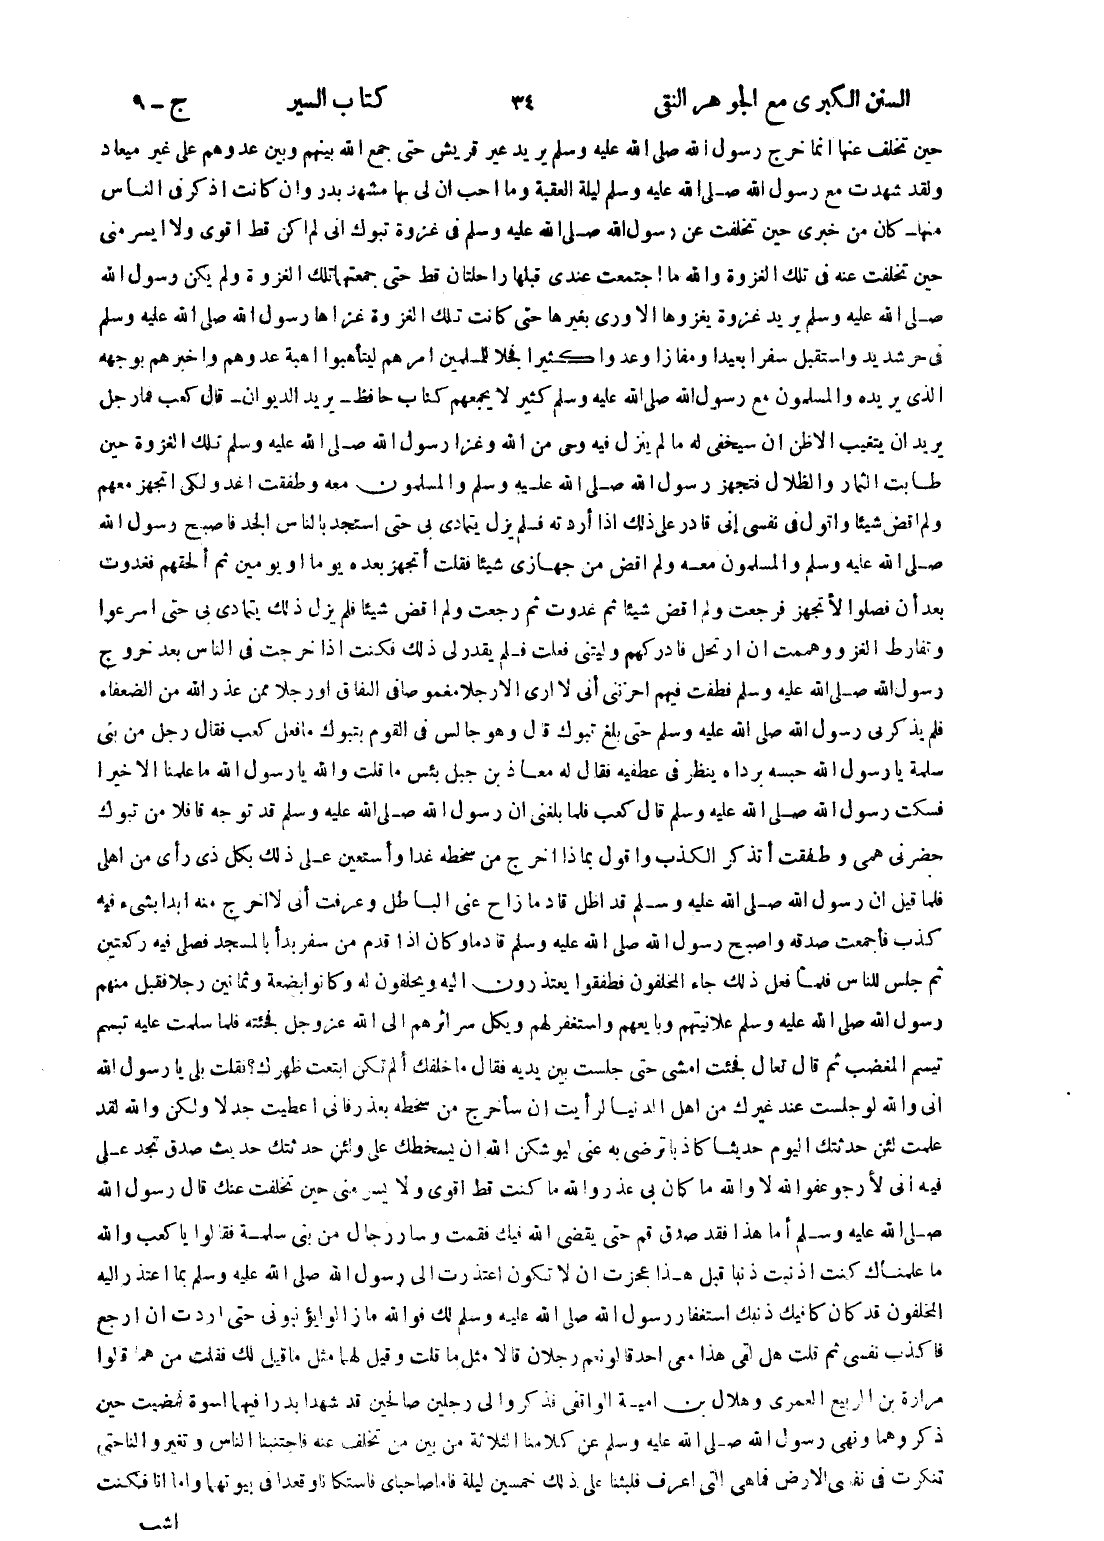 السنن الكبرى مع الجوهر النقى ٣٤ كتاب السير ج - ٩
حين تخلف عنها انما خرج رسول الله صلى الله عليه وسلم يريد عير قريش حتى جمع الله بينهم وبين عدوهم على غير ميعاد
ولقد شهدت مع رسول الله صلى الله عليه وسلم ليلة العقبة وما احب ان لى بها مشهد بدر وان كانت اذكر فى الناس
منها - كان من خبرى حين تخلفت عن رسول الله صلى الله عليه وسلم فى غزوة تبوك انى لم اكن قط اقوى ولا ايسر منى
حين تخلفت عنه فى تلك الغزوة والله ما اجتمعت عندى قبلها راحلتان قط حتى جمعتهما تلك الغزوة ولم يكن رسول الله
صلى الله عليه وسلم يريد غزوة يغزوها الا ورى بغيرها حتى كانت تلك الغزوة غزاها رسول الله صلى الله عليه وسلم
فى حر شديد واستقبل سفرا بعيدا ومفازا وعدوا كثيرا فجلا للمسلمين امرهم ليتأهبوا اهبة عدوهم واخبرهم بوجهه
الذى يريده والمسلمون مع رسول الله صلى الله عليه وسلم كثير لا يجمعهم كتاب حافظ - يريد الديوان - قال كعب فما رجل
يريد ان يتغيب الا ظن ان سيخفى له ما لم ينزل فيه وحى من الله وغزا رسول الله صلى الله عليه وسلم تلك الغزوة حين
طابت الثمار والظلال فتجهز رسول الله صلى الله عليه وسلم والمسلمون معه وطفقت اغدو لكى اتجهز معهم
ولم اقض شيئا واقول فى نفسى إنى قادر على ذلك اذا أردته فلم يزل يتمادى بى حتى استجد بالناس الجد فاصبح رسول الله
صلى الله عليه وسلم والمسلمون معه ولم اقض من جهازى شيئا فقلت أتجهز بعده يوما او يومين ثم ألحقهم فغدوت
بعد أن فصلوا لأتجهز فرجعت ولم اقض شيئا ثم غدوت ثم رجعت ولم اقض شيئا فلم يزل ذلك يتمادى بى حتى اسرعوا
وتفارط الغزو وهممت ان ارتحل فادركهم وليتنى فعلت فلم يقدر لى ذلك فكنت اذا خرجت فى الناس بعد خروج
رسول الله صلى الله عليه وسلم فطفت فيهم احزننى أنى لا ارى الا رجلا مغموصا فى النفاق اورجلا ممن عذر الله من الضعفاء
فلم يذكرنى رسول الله صلى الله عليه وسلم حتى بلغ تبوك قال وهو جالس فى القوم بتبوك ما فعل كعب فقال رجل من بنى
سلمة يا رسول الله حبسه برداه ينظر فى عطفيه فقال له معاذ بن جبل بئس ما قلت والله يا رسول الله ما علمنا الا خيرا
فسكت رسول الله صلى الله عليه وسلم قال كعب فلما بلغنى ان رسول الله صلى الله عليه وسلم قد توجه قافلا من تبوك
حضرنى همى وطفقت أتذكر الكذب واقول بماذا اخرج من سخطه غدا وأستعين على ذلك بكل ذى رأى من اهلى
فلما قيل ان رسول الله صلى الله عليه وسلم قد اظل قادما زاح عنى الباطل وعرفت أنى لا اخرج منه ابدا بشىء فيه
كذب فأجمعت صدقه واصبح رسول الله صلى الله عليه وسلم قادما وكان اذا قدم من سفر بدأ بالمسجد فصلى فيه ركعتين
ثم جلس للناس فلما فعل ذلك جاء المخلفون فطفقوا يعتذرون اليه ويحلفون له وكانوا بضعة وثمانين رجلا فقبل منهم
رسول الله صلى الله عليه وسلم علانيتهم وبايعهم واستغفر لهم ويكل سرائرهم الى الله عزوجل فجئته فلما سلمت عليه تبسم
تبسم المغضب ثم قال تعال فجئت امشى حتى جلست بين يديه فقال ما خلفك ألم تكن ابتعت ظهرك؟ فقلت بلى يا رسول الله
انى والله لو جلست عند غيرك من اهل الدنيا لرأيت ان سأخرج من سخطه بعذر فانى اعطيت جدلا ولكن والله لقد
علمت لئن حدثتك اليوم حديثا كاذبا ترضى به عنى ليوشكن الله ان يسخطك على ولئن حدثتك حديث صدق تجد على
فيه انى لأرجو عفو الله لا والله ما كان بى عذر والله ما كنت قط اقوى ولا يسر منى حين تخلفت عنك قال رسول الله
صلى الله عليه وسلم أما هذا فقد صدق قم حتى يقضى الله فيك فقمت وسار رجال من بنى سلمة فقالوا يا كعب والله
ما علمناك كنت اذنبت ذنبا قبل هذا عجزت ان لا تكون اعتذرت الى رسول الله صلى الله عليه وسلم بما اعتذر اليه
المخلفون قد كان كافيك ذنبك استغفار رسول الله صلى الله عليه وسلم لك فوالله ما زالوا يؤنبونى حتى اردت ان ارجع
فاكذب نفسى ثم قلت هل لقى هذا معى احد قالوا نعم رجلان قالا مثل ما قلت وقيل لهما مثل ما قيل لك فقلت من هما قالوا
مرارة بن الربيع العمرى وهلال بن امية الواقفى فذكروا لى رجلين صالحين قد شهدا بدرا فيهما اسوة فمضيت حين
ذكروهما ونهى رسول الله صلى الله عليه وسلم عن كلامنا الثلاثة من بين من تخلف عنه فاجتنبنا الناس وتغيروا لنا حتى
تنكرت فى نفسى الارض فما هى التى اعرف فلبثنا على ذلك خمسين ليلة فاما صاحباى فاستكانا وقعدا فى بيوتهما واما انا فكنت
اشب